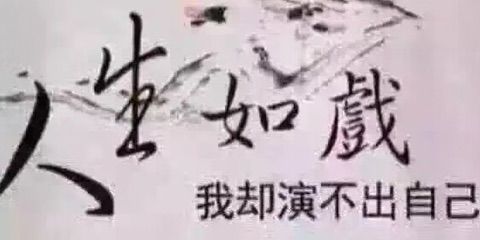 人生如戲
我却演不出自己